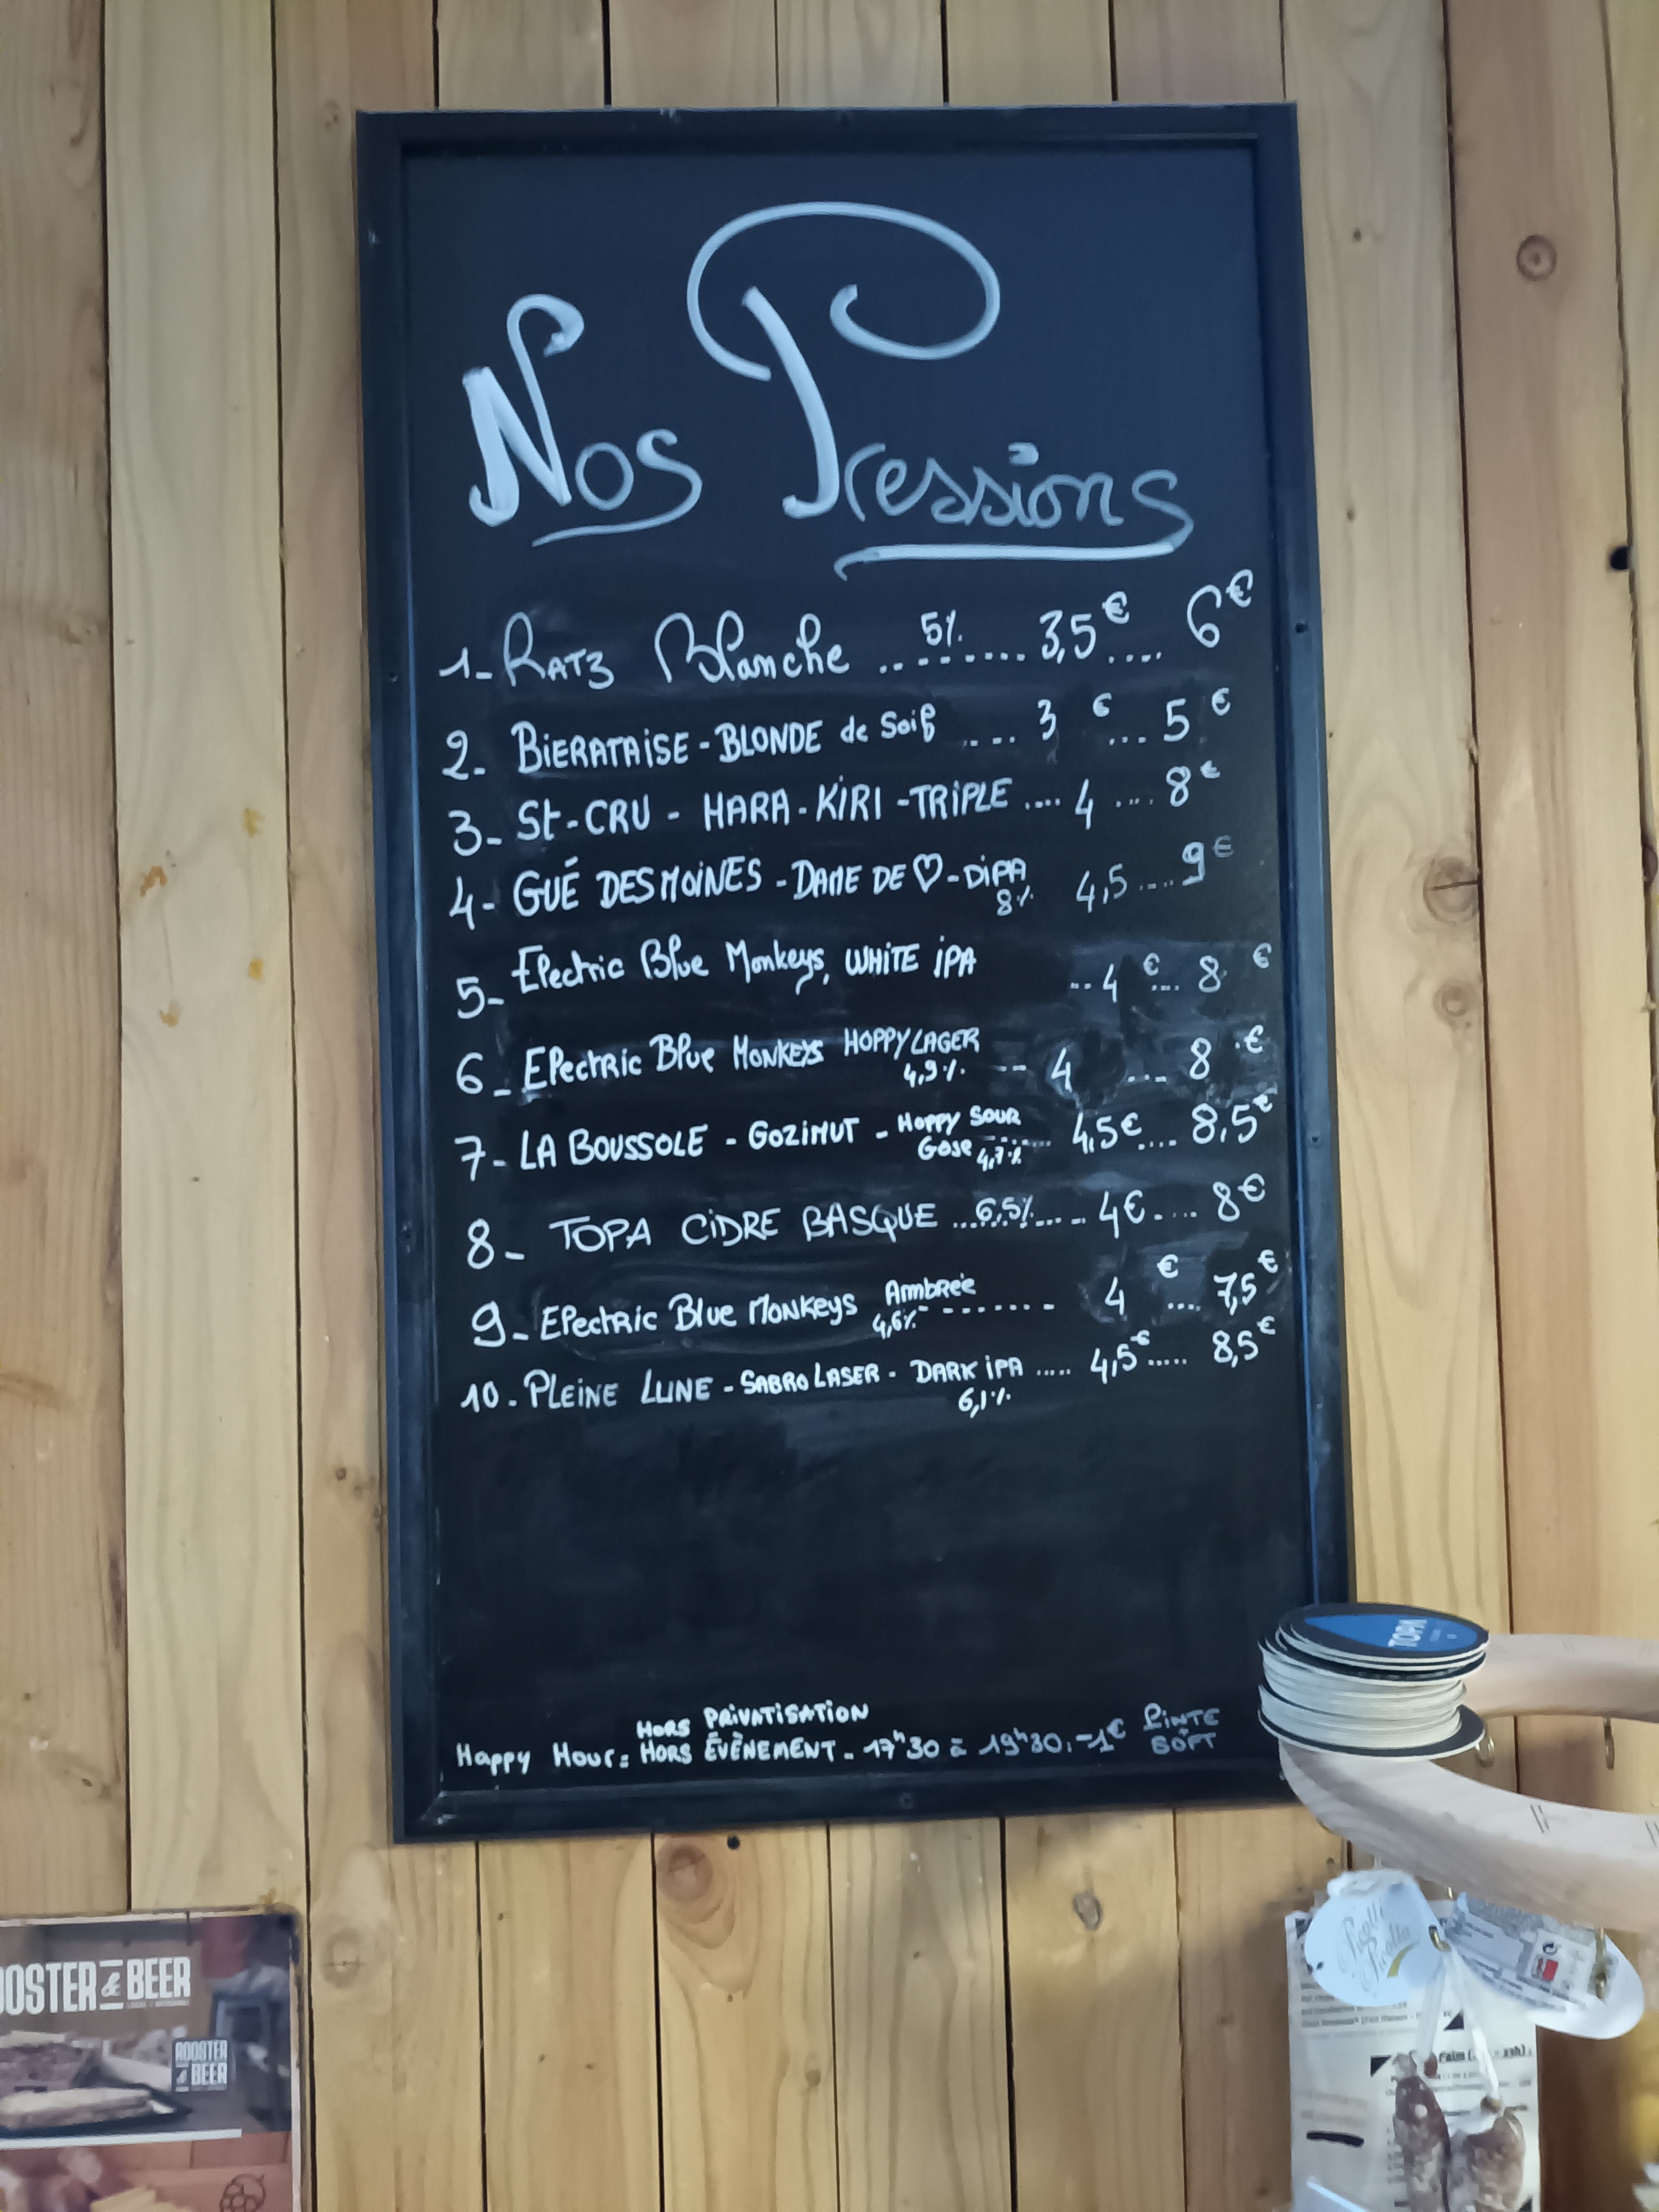 Nos Pressions
1- Ratz Blanche ..5%...... 3,5€ .... 6€
2- BiERATAiSE - BLONDE de Soif .... 3 € ... 5 €
3- St-CRU - HARA-KiRI -TRiPLE .... 4 .... 8€
4- GUÉ DES MOiNES - DAME DE ♡ - DiPA 4,5 .... 9€
8%
5- Electric Blue Monkeys, WHiTE iPA .. 4 € .... 8 €
6- Electric Blue MONKEYS HOPPY LAGER -- 4 .... 8 €
4,9%
7- LA BOUSSOLE - GOZiMUT - HOPPY SOUR ..... 4,5€ .... 8,5€
Gose 4,7%
8- TOPA CiDRE BASQUE ...6,5%.... 4€ .... 8€
9- Electric Blue MONKEYS Ambrée ------- 4 € .... 7,5€
4,6%
10- PLEiNE LUNE - SABRO LASER - DARK iPA ..... 4,5€ ..... 8,5€
6,1%
HORS PRiVATiSATiON
Happy Hour: HORS ÉVÈNEMENT - 17h30 à 19h30: -1€ PiNTE
SOFT
TOPA
OOSTER & BEER
ROOSTER
& BEER